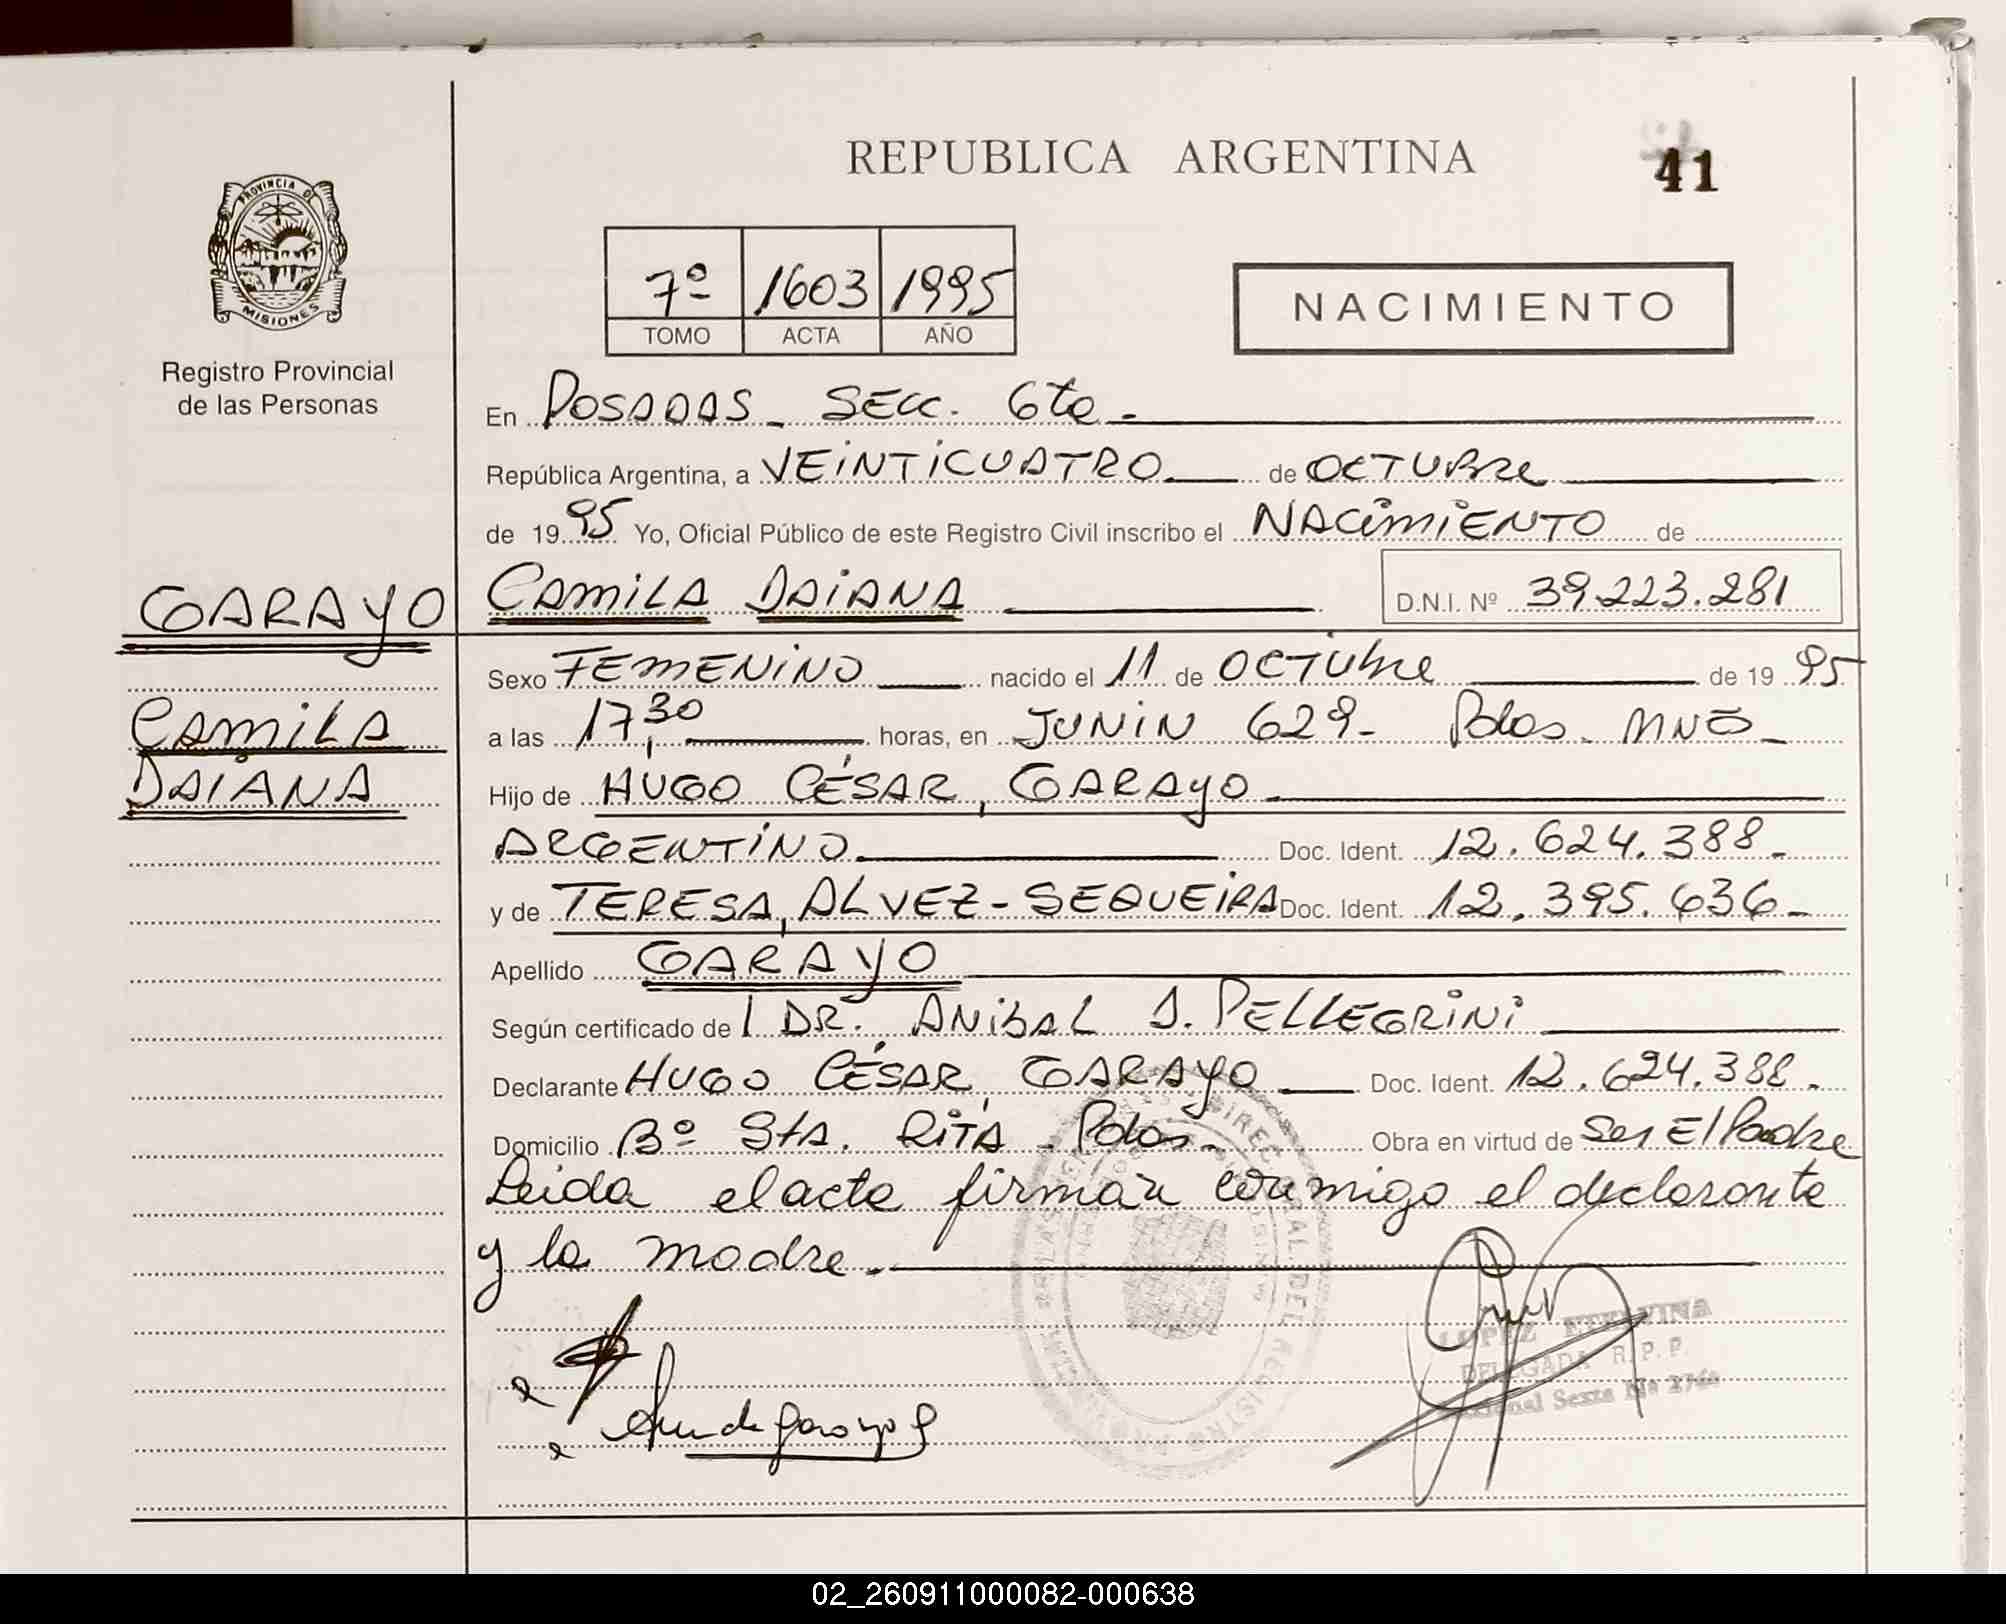 REPUBLICA ARGENTINA
41
PROVINCIA DE
MISIONES
Registro Provincial
de las Personas
7º 1603 1995
TOMO ACTA AÑO
NACIMIENTO
En POSADAS - SECC. 6ta -
República Argentina, a VEINTICUATRO de OCTUBRE
de 1995 Yo, Oficial Público de este Registro Civil inscribo el NACIMIENTO de
GARAYO
CAMILA DAIANA D.N.I. Nº 39.223.281
Sexo FEMENINO nacido el 11 de OCTUBRE de 1995
CAMILA
DAIANA
a las 17,30 horas, en JUNIN 629 - Pdas. MNES -
Hijo de HUGO CÉSAR, GARAYO -
ARGENTINO Doc. Ident. 12.624.388 -
y de TERESA, ALVEZ - SEQUEIRA Doc. Ident. 12.395.636 -
Apellido GARAYO
Según certificado de l DR. ANIBAL J. PELLEGRINI
Declarante HUGO CÉSAR, GARAYO Doc. Ident. 12.624.388 -
Domicilio Bº Sta. RITA - Pdas - Obra en virtud de Ser El Padre
Leida el acta firman conmigo el declarante
y la madre. -
de Garayo
LOPEZ ETELVINA
DELEGADA R. P. P.
Sexta Nº
02_260911000082-000638